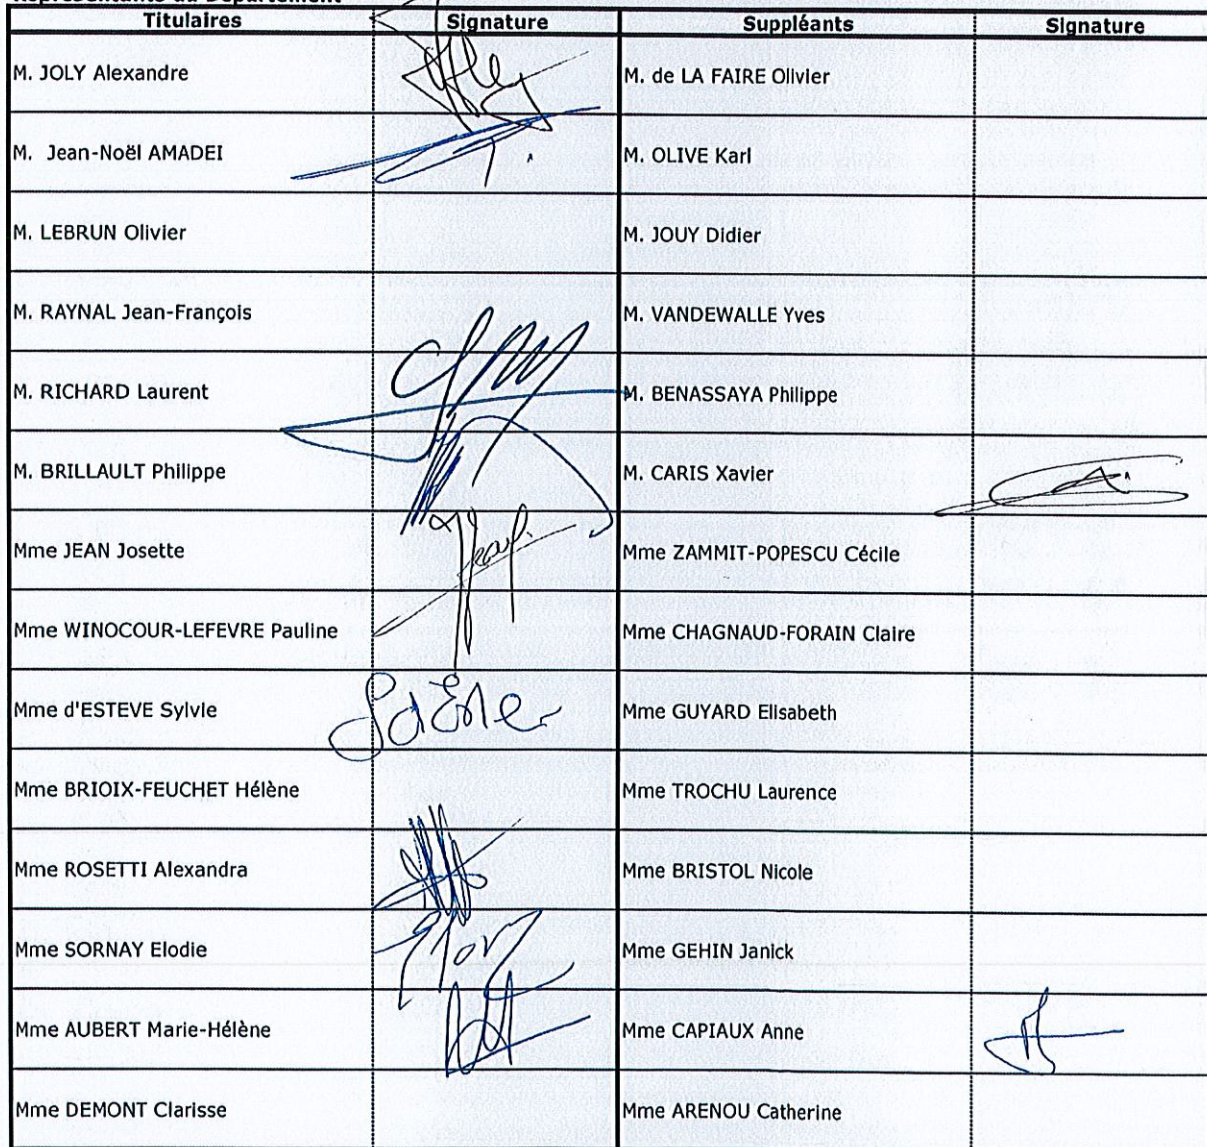 Représentants du Département
Titulaires Signature Suppléants Signature
M. JOLY Alexandre M. de LA FAIRE Olivier
M. Jean-Noël AMADEI M. OLIVE Karl
M. LEBRUN Olivier M. JOUY Didier
M. RAYNAL Jean-François M. VANDEWALLE Yves
M. RICHARD Laurent M. BENASSAYA Philippe
M. BRILLAULT Philippe M. CARIS Xavier
Mme JEAN Josette Mme ZAMMIT-POPESCU Cécile
Mme WINOCOUR-LEFEVRE Pauline Mme CHAGNAUD-FORAIN Claire
Mme d'ESTEVE Sylvie Mme GUYARD Elisabeth
Mme BRIOIX-FEUCHET Hélène Mme TROCHU Laurence
Mme ROSETTI Alexandra Mme BRISTOL Nicole
Mme SORNAY Elodie Mme GEHIN Janick
Mme AUBERT Marie-Hélène Mme CAPIAUX Anne
Mme DEMONT Clarisse Mme ARENOU Catherine